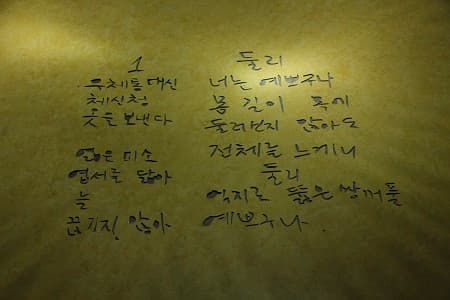 1
우체통 대신
체신청
웃을 보낸다
엷은 미소
엽서를 닮아
늘
끊기지! 않아
둘리
너는 예쁘구나
몸 길이 폭에
둘러보지 않아도
전체를 느끼니
둘리
억지로 뚫은 쌍꺼풀
예쁘구나.